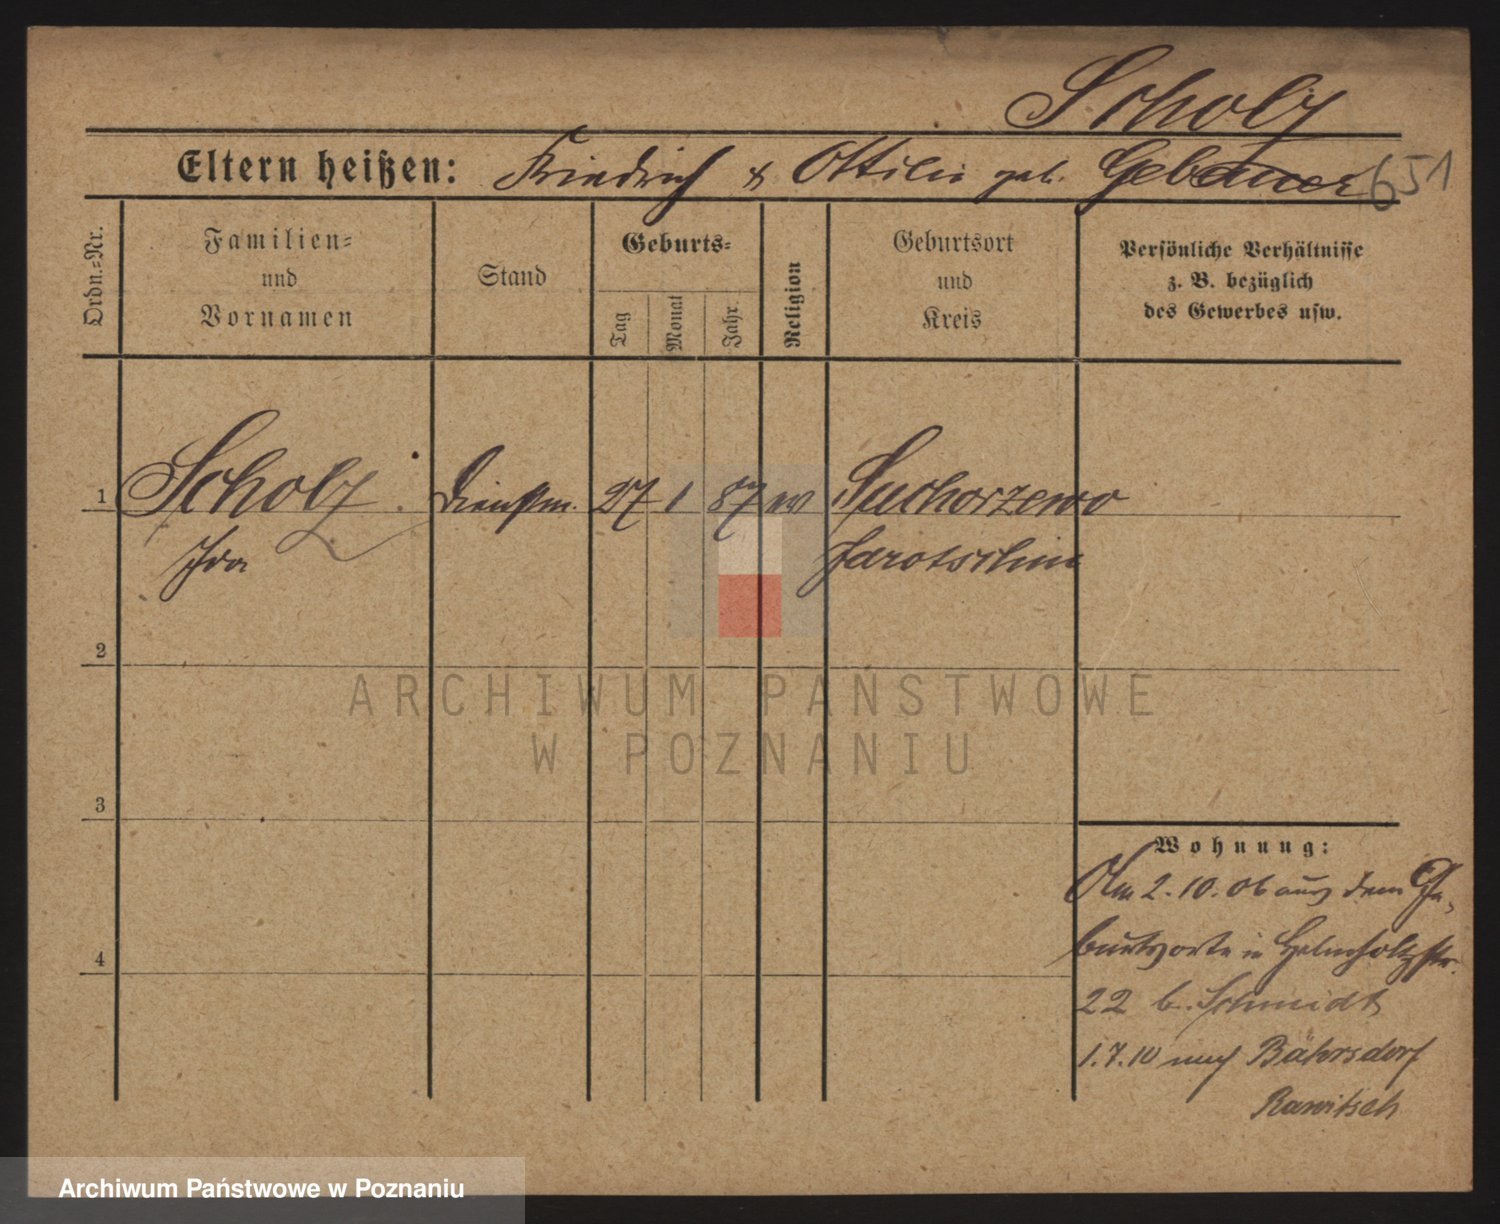 Scholz
Eltern heißen: Friedrich & Ottilie geb. Gebauer 651
Ordn.-Nr.
Familien-
und
Vornamen
Stand
Geburts-
Tag
Monat
Jahr
Religion
Geburtsort
und
Kreis
Persönliche Verhältnisse
z. B. bezüglich
des Gewerbes usw.
1 Scholz Dienstm. 27 1 87 ev Suchorzewo
Ida Jarotschin
2
3
4
Wohnung:
Am 2.10.06 aus dem Ge-
burtsorte in Helmholtzstr.
22 b. Schmidt
1.7.10 nach Bährsdorf
Rawitsch
ARCHIWUM PAŃSTWOWE
W POZNANIU
Archiwum Państwowe w Poznaniu